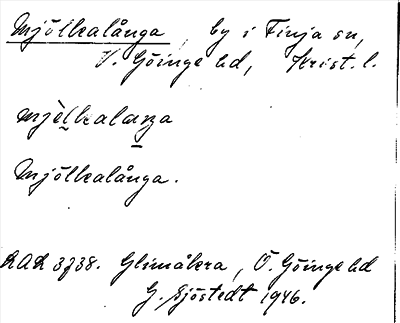 Mjölkalånga, by i Finja sn,
V. Göinge hd, Krist. l.
mjèlkalaŋa
Mjölkalånga.
Glimåkra, Ö. Göinge hd
G. Sjöstedt 1946.